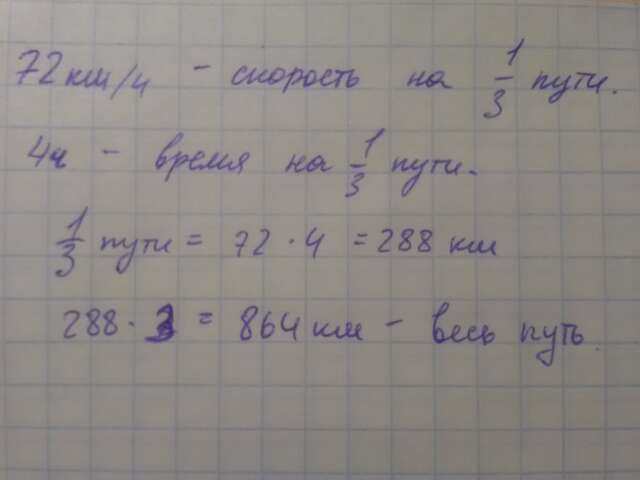 72 км/ч - скорость на 1/3 пути.
4ч - время на 1/3 пути.
1/3 пути = 72 · 4 = 288 км
288 · 3 = 864 км - весь путь